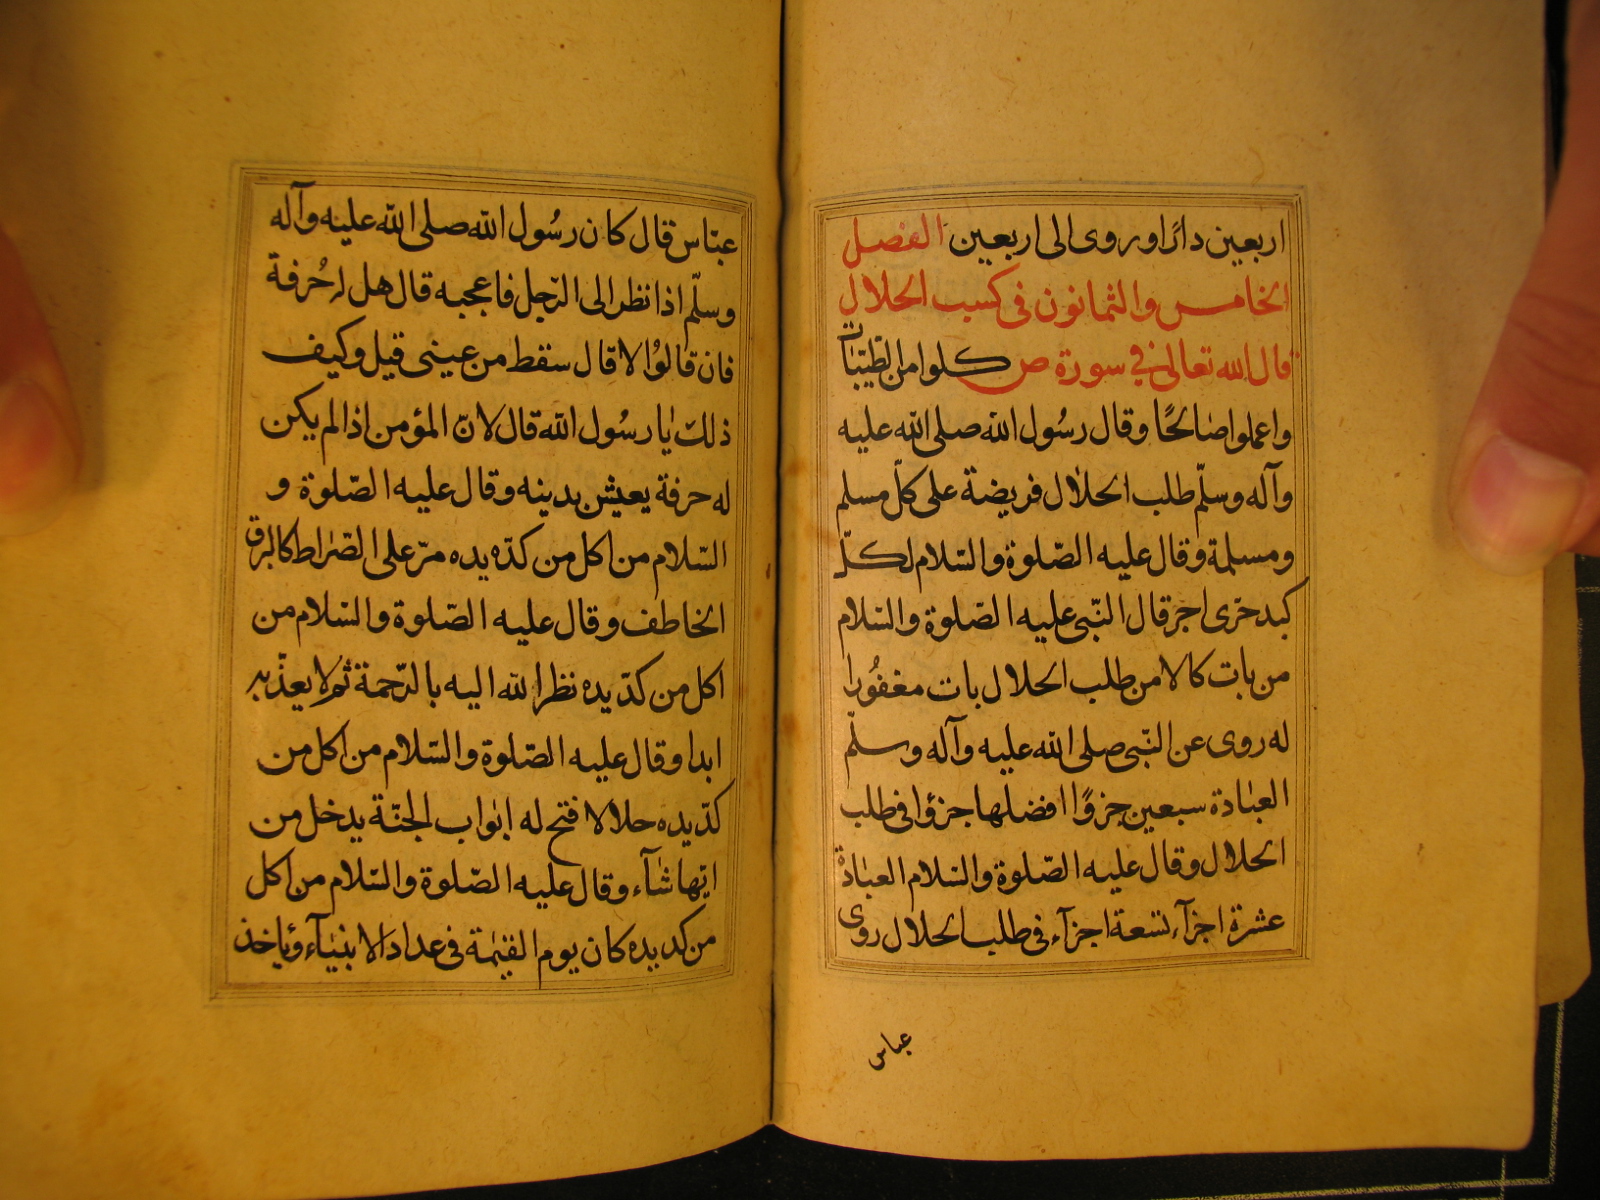 اربعين دارًا وروى الى اربعين الفصل
الخامس والثمانون فى كسب الحلال
قال الله تعالى فى سورة ص كلوا من الطيّبات
واعملوا صالحًا وقال رسُول الله صلى الله عليه
وآله وسلّم طلب الحلال فريضة على كلّ مسلم
ومسلمة وقال عليه الصّلوة والسّلام لكلّ
كبد حرّى اجر قال النّبى عليه الصّلوة والسّلام
من بات كالا من طلب الحلال بات مغفُورا
له روى عن النّبى صلى الله عليه وآله وسلّم
العبادة سبعين جزوًا افضلها جزؤا فى طلب
الحلال وقال عليه الصّلوة والسّلام العبادة
عشرة اجزآء تسعة اجزآء فى طلب الحلال روى
عباس
عبّاس قال كان رسُول الله صلى الله عليه وآله
وسلّم اذا نظر الى الرّجل فاعجبه قال هل له حُرفة
فان قالوُا لا قال سقط من عينى قيل وكيف
ذلك يا رسُول الله قال لانّ المؤمن اذا لم يكن
له حرفة يعيش بدينه وقال عليه الصّلوة و
السّلام من اكل من كدّ يده مرّ على الصّراط كالبرق
الخاطف وقال عليه الصّلوة والسّلام من
اكل من كدّ يده نظر الله اليه بالرّحمة ثم لا يعذّبه
ابدا وقال عليه الصّلوة والسّلام من اكل من
كدّ يده حلالا فتح له ابواب الجنّة يدخل من
ايّها شآء وقال عليه الصّلوة والسّلام من اكل
من كد يده كان يوم القيٰمة فى عداد الانبيآء وياخذ